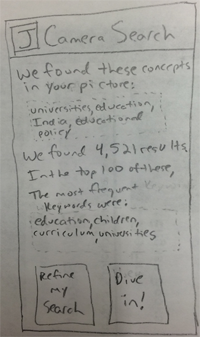 J Camera Search
We found these concepts
in your picture:
universities, education,
India, educational
policy
We found 4,521 results.
In the top 100 of these,
The most frequent
keywords were:
education, children,
curriculum, universities
Refine
my
Search
Dive
in!